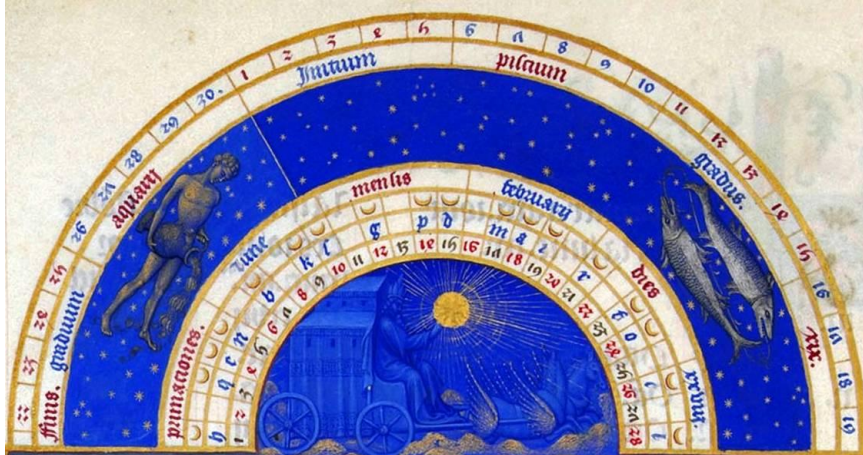 22 23 24 25 26 27 28 29 30. 1 2 3 4 5 6 7 8 9 10 11 12 13 14 15 16 17 18 19
ffinis. graduum aquarii Initium piscium gradus. xix.
primaciones. lune mensis february dies xxix
q c n b k g p d m a r o l
1 2 3 4 5 6 7 8 9 10 11 12 13 14 15 16 17 18 19 20 21 22 23 24 25 26 27 28